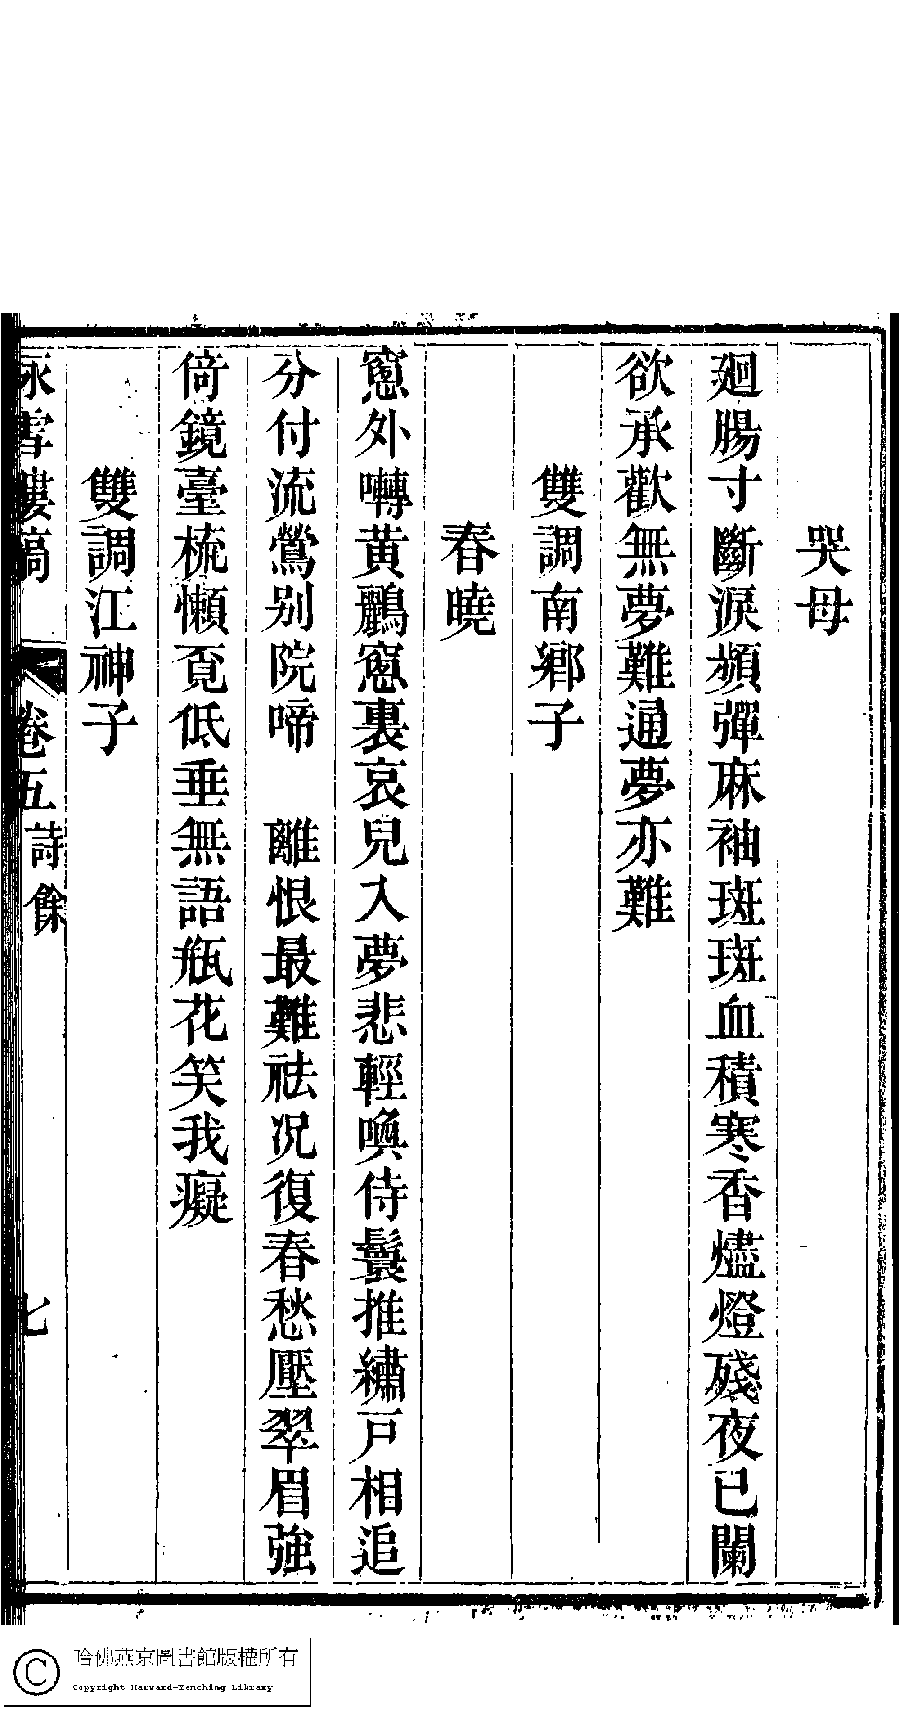 哭母
廻腸寸斷淚頻彈麻袖斑斑血積寒香燼燈殘夜已闌
欲承歡無夢難通夢亦難
雙調南鄉子
春曉
窻外囀黃鸝窻裏哀兒入夢悲輕喚侍鬟推繡戸相追
分付流鶯别院啼　離恨最難祛况復春愁壓翠眉強
倚鏡臺梳懶覔低垂無語瓶花笑我癡
雙調江神子
詠雪樓稿　卷五詩餘　七
哈佛燕京圖書館版權所有
Copyright Harvard-Yenching Library